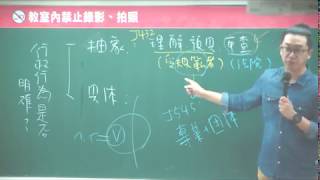 教室內禁止錄影、拍照
抽象? J432 理解 預見 審查
(受規範者) (法院)
行政行為是否明確?
具體:
J545
專業團體
n.r. V